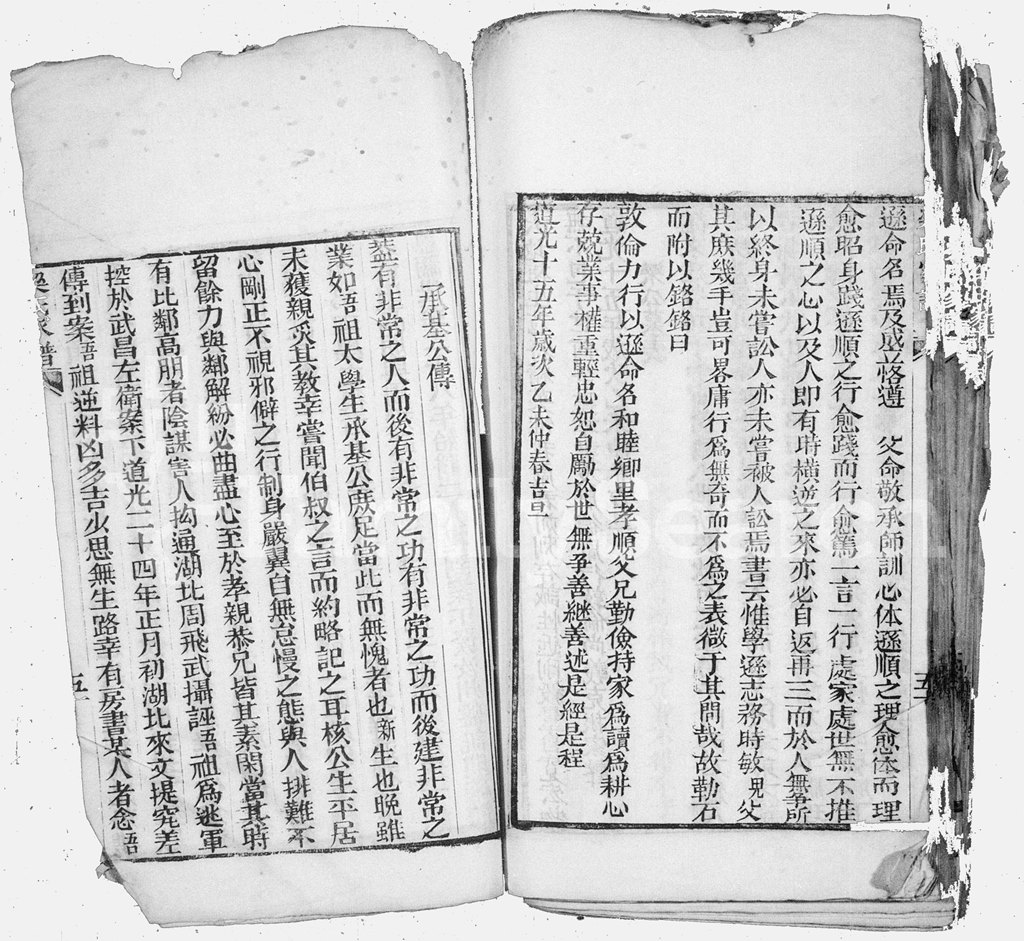 遜命名焉及成立恪遵　父命敬承師訓心体遜順之理愈体而理
愈昭身踐遜順之行愈踐而行愈篤一言一行處家處世無不推
遜順之心以及人即有時橫逆之來亦必自返再三而於人無爭所
以終身未嘗訟人亦未嘗被人訟焉書云惟學遜志務時敏見父
其庶幾乎豈可畧庸行爲無奇而不爲之表微于其間哉故勒石
而附以銘銘曰
敦倫力行以遜命名和睦鄉里孝順父兄勤儉持家爲讀爲耕心
存兢業事權重輕忠恕自勵於世無爭善繼善述是經是程
道光十五年歲次乙未仲春吉旦
五
承基公傳
蓋有非常之人而後有非常之功有非常之功而後建非常之
業如語祖太學生承基公庶足當此而無愧者也新生也晚雖
未獲親炙其教幸嘗聞伯叔之言而約略記之耳核公生平居
心剛正不視邪僻之行制身嚴翼自無忌慢之態與人排難不
留餘力與鄰解紛必曲盡心至於孝親恭兄皆其素閑當其時
有比鄰高朋者陰謀害人拘通湖北周飛武攝誣語祖爲逃軍
控於武昌左衛案下道光二十四年正月初湖北來文提究差
傳到案語祖逆料凶多吉少思無生路幸有房書某人者念語
家譜
五